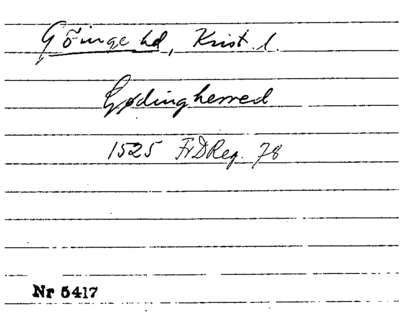 Göinge hd, Krist. l.
Gødingherred
1525 FrDReg. 78
Nr 5417